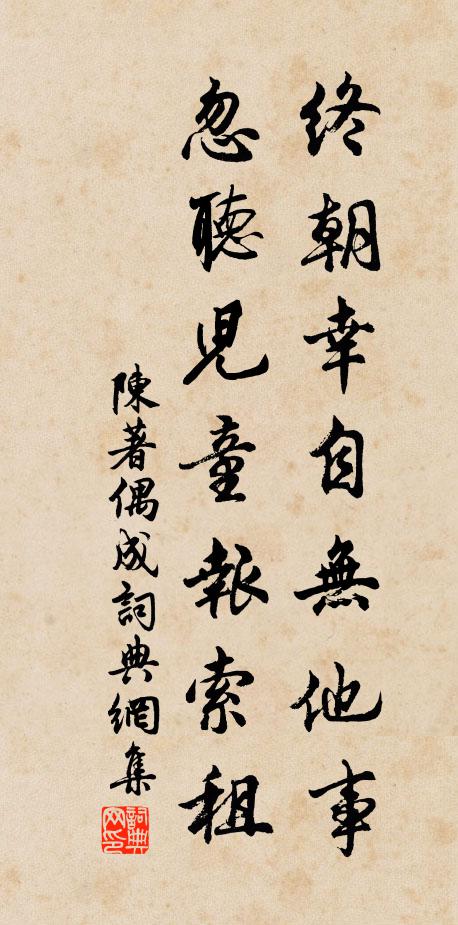 終朝幸自無他事
忽聽兒童報索租
陳著偶成詞典網集
詞典網印